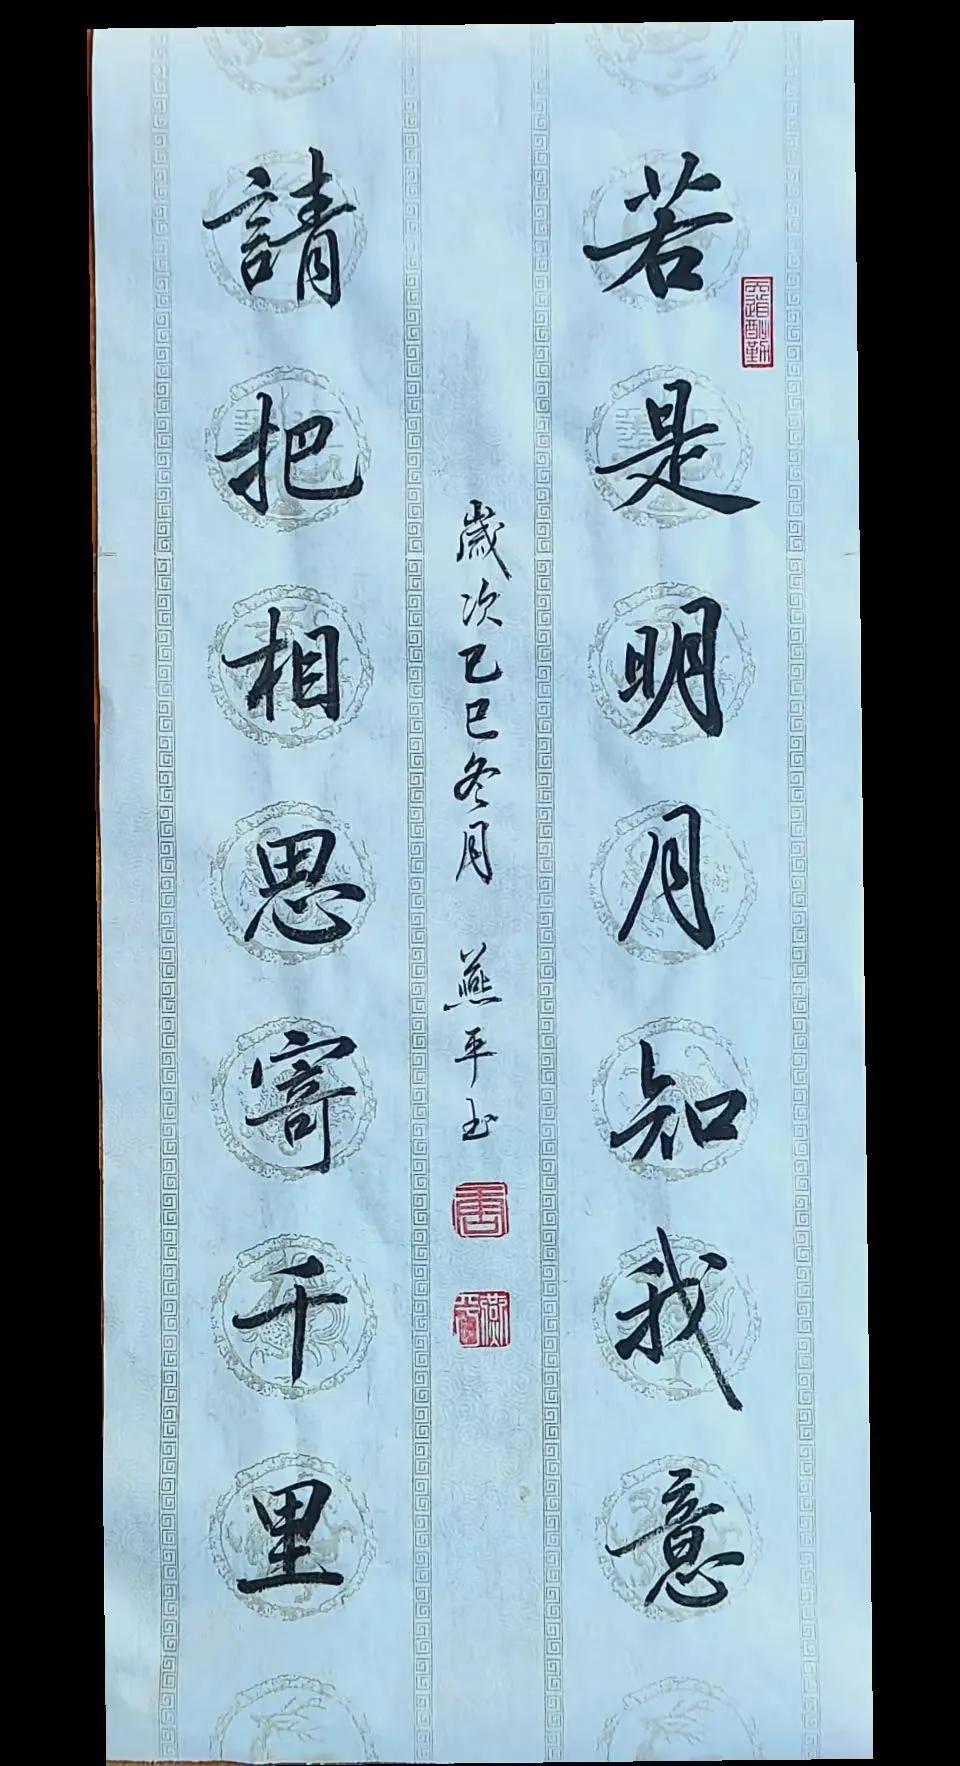 若是明月知我意
請把相思寄千里
歲次乙巳冬月 燕平书
天道酬勤